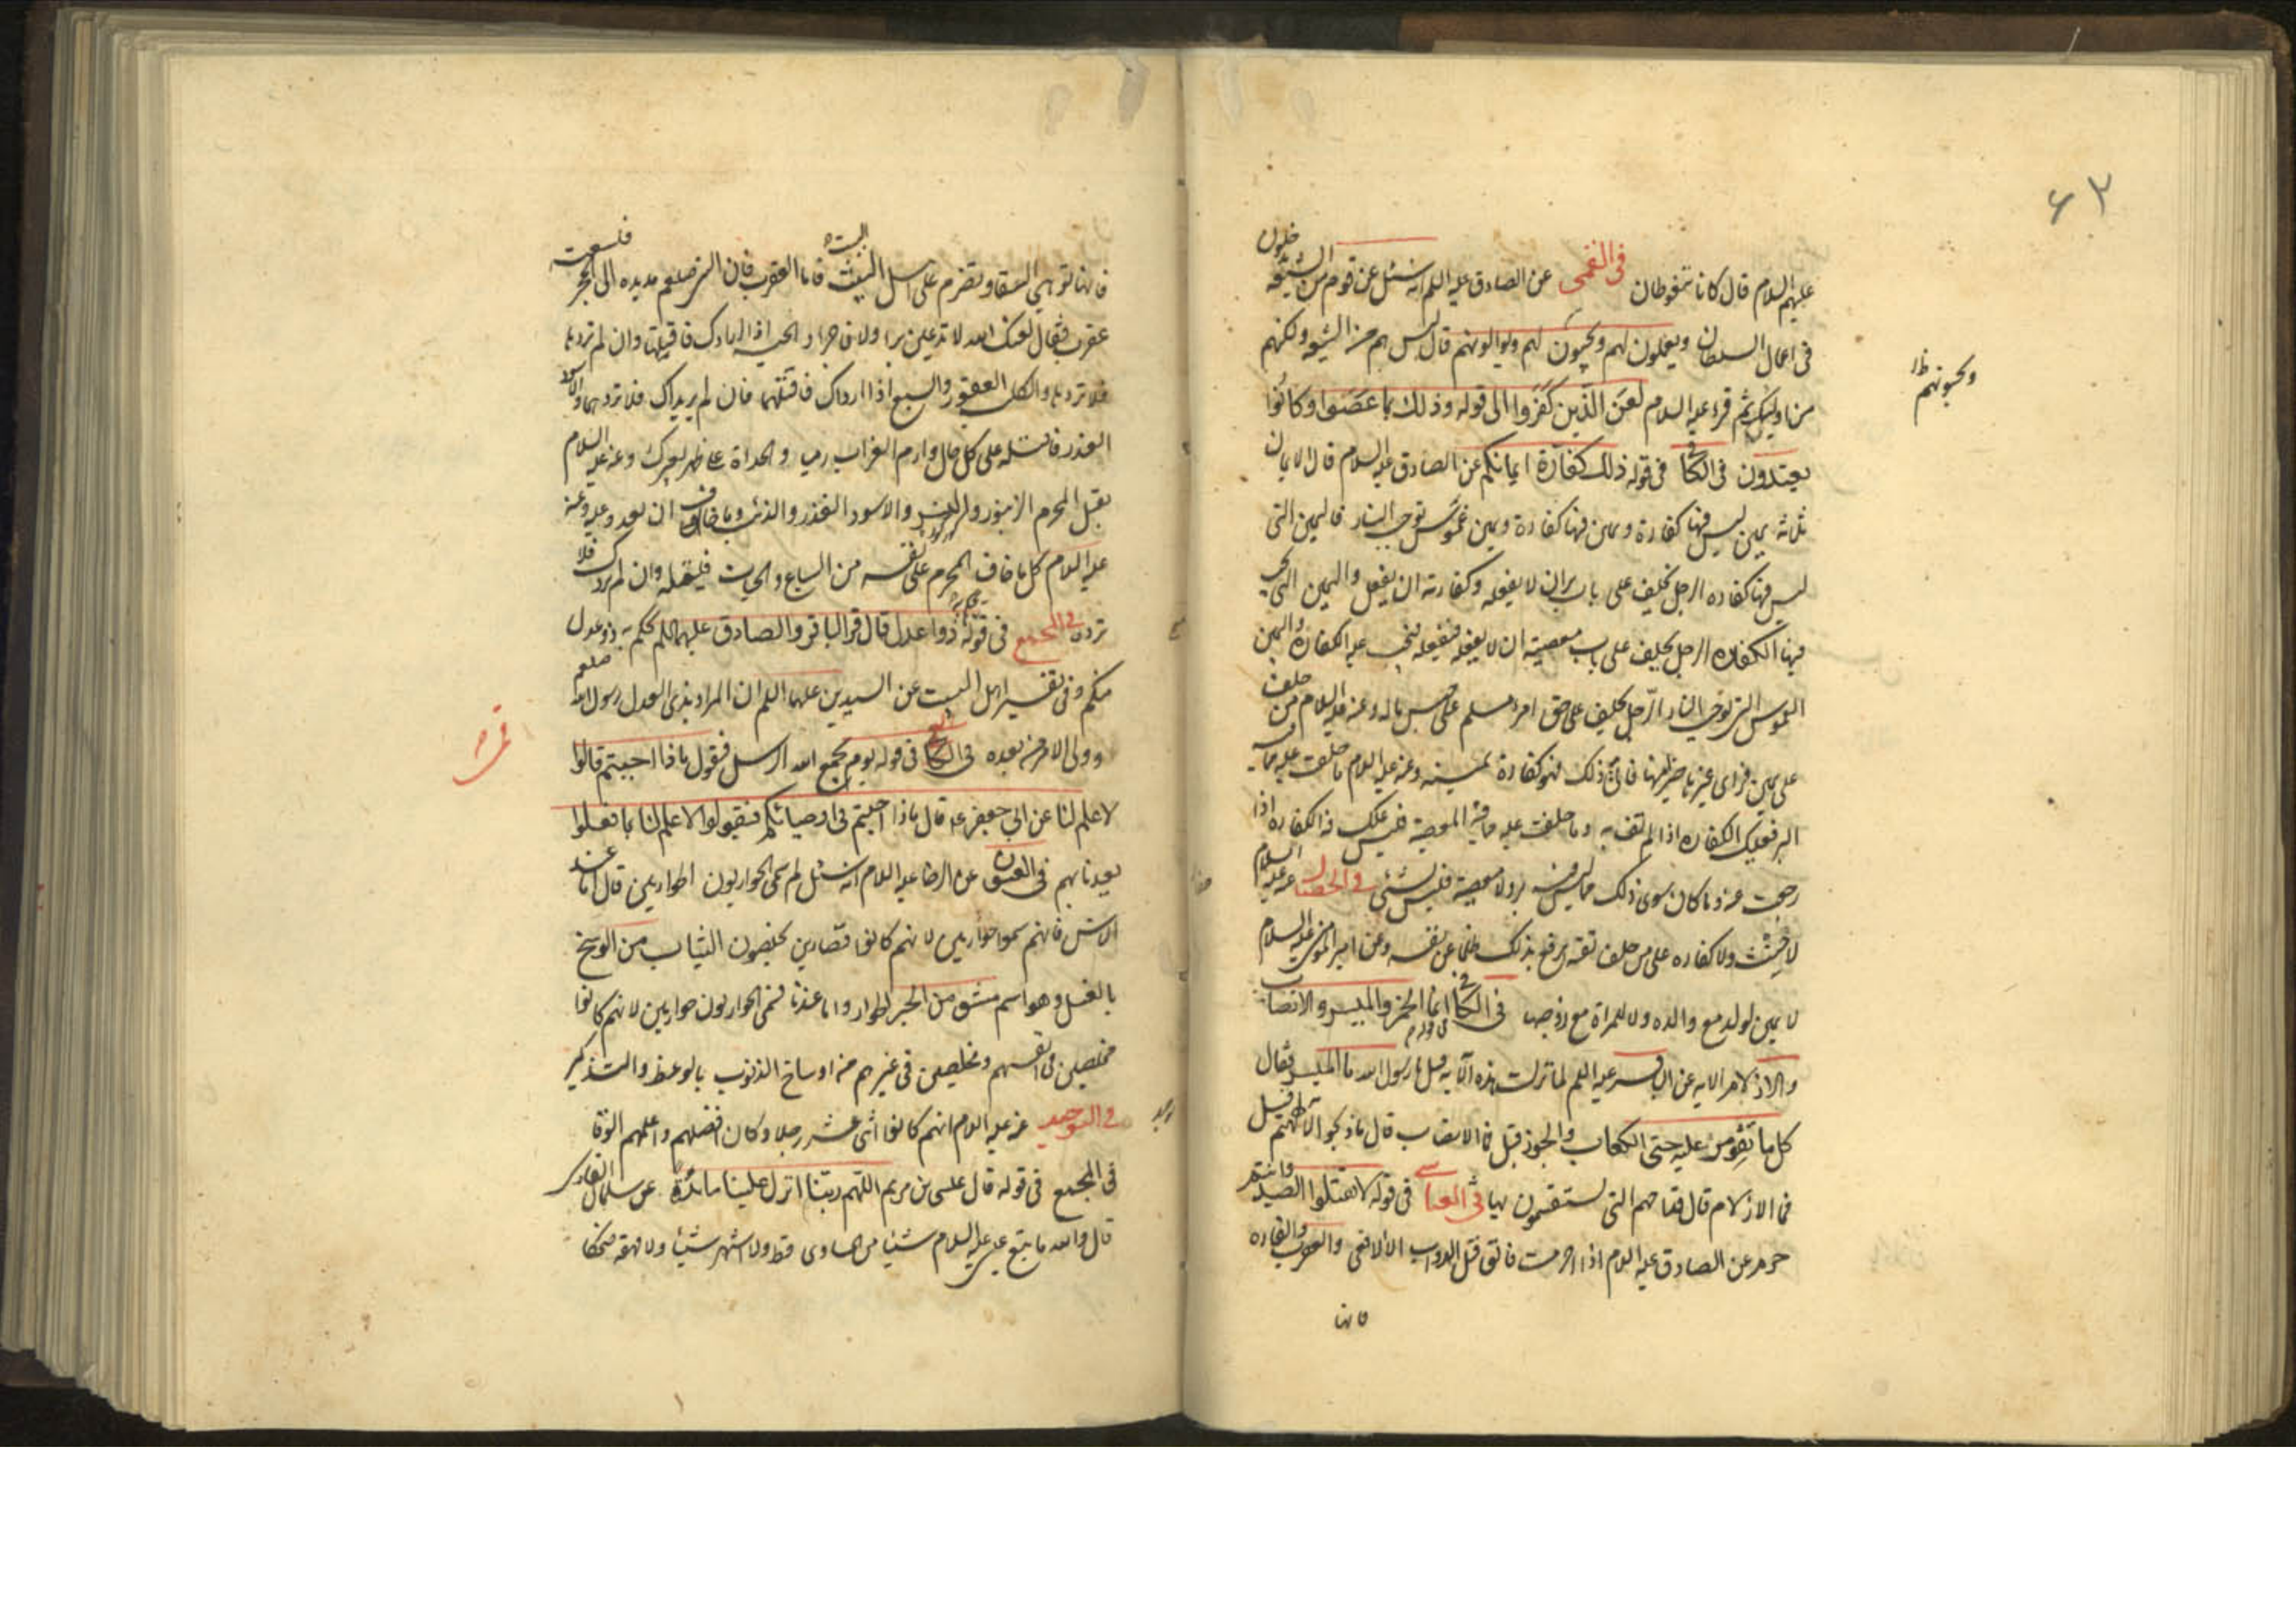 ٦٣
عليهم السلام قال كانا يتغوطان في القمي عن الصادق عليه السلم انه سئل عن قوم من الشيعة يدخلون
في اعمال السلطان ويعملون لهم ويحبون لهم ويوالونهم قال ليس هم من الشيعة ولكنهم
ويحبونهم ظ
من اوليك ثم قرء عليه السلام لعن الذين كفروا الى قوله وذلك بما عصوا وكانوا
يعتدون في الكافي في قوله ذلك كفارة ايمانكم عن الصادق عليه السلام قال الايمان
ثلاثة يمين ليس فيها كفارة ويمين فيها كفارة ويمين غموس توجب النار فاليمين التي
ليس فيها كفاره الرجل يحلف على باب بر ان لا يفعله وكفارته ان يفعل واليمين التي يجب
فيها الكفاره الرجل يحلف على باب معصية ان لا يفعله فيفعله فيجب عليه الكفارة واليمين
الغموس التي توجب النار الرجل يحلف على حق امرء مسلم على حبس ماله وعنه عليه السلام من حلف
على يمين فراى غيرها خيرا منها فاتى ذلك فهو كفارة يمينه وعنه عليه السلام ما حلفت عليه مما فيه
البر فعليك الكفاره اذا لم تف به وما حلفت عليه مما فيه المعصية فليس عليك فيه الكفاره اذا
رجعت عنه وما كان سوى ذلك مما ليس فيه بر ولا معصية فليس بشئ في الخصال عنه عليه السلام
لا حنث ولا كفاره على من حلف تقية يدفع بذلك ظلما عن نفسه وعن امير المؤمنين عليه السلام
لا يمين لولد مع والده ولا للمراة مع زوجها في الكافي انما الخمر والميسر والانصاب
والازلام الايه عن الباقر عليه السلم لما نزلت هذه الآية قيل يا رسول الله ما الميسر فقال
كل ما تقومر عليه حتى الكعاب والجوز قيل فما الانصاب قال ما ذبحوا لآلهتهم قيل
فما الازلام قال قداحهم التي يستقسمون بها في العياشي في قوله لا تقتلوا الصيد وانتم
حرم عن الصادق عليه السلام اذا احرمت فاتق قتل الدواب الا الافعى والعقرب والفاره
فانها
فانها توهي السقاء وتضرم على اهل البيت فاما العقرب فان النبي صلعم مد يده الى الحجر فلسعته
عقرب فقال لعنك الله لا تدعين برا ولا فاجرا والحية اذا ارادتك فاقتلها وان لم تردها
فلا تردها والكلب العقور والسبع اذا اراداك فاقتلهما فان لم يريداك فلا تردهما والاسود
الغدر فاقتله على كل حال وارم الغراب رميا والحداة على ظهر بعيرك وعنه عليه السلام
يقتل المحرم الزنبور والنسر والاسود الغدر والذئب وما خاف ان يعدو عليه وعنه
عليه السلام كل ما خاف المحرم على نفسه من السباع والحيات فليقتله وان لم يردك فلا
ترده في المجمع في قوله يحكم به ذوا عدل قال قرا الباقر والصادق عليهما السلم يحكم به ذو عدل
منكم وفي تفسير اهل البيت عن السيدين عليهما السلم ان المراد بذي العدل رسول الله صلعم
وولي الامر من بعده في الكافي في قوله يوم يجمع الله الرسل فيقول ماذا اجبتم قالوا
لا علم لنا عن ابي جعفر عه قال ماذا اجبتم في اوصيائكم فيقولوا لا علم لنا بما فعلوا
بعدنا بهم في العيون عن الرضا عليه السلام انه سئل لم سمي الحواريون الحواريين قال اما عند
الناس فانهم سموا حواريين لانهم كانوا قصارين يخلصون الثياب من الوسخ
بالغسل وهو اسم مشتق من الخبز الحوار واما عندنا فسمي الحواريون حواريين لانهم كانوا
مخلصين في انفسهم ومخلصين في غيرهم من اوساخ الذنوب بالوعظ والتذكير
في التوحيد عنه عليه السلام انهم كانوا اثنى عشر رجلا وكان افضلهم واعلمهم الوقا
في المجمع في قوله قال عيسى بن مريم اللهم ربنا انزل علينا مائدة عن سلمان الفارسي
قال والله ما تبع عيسى عليه السلام شيئا من المساوى قط ولا انتهر شيئا ولا قهقه ضحكا